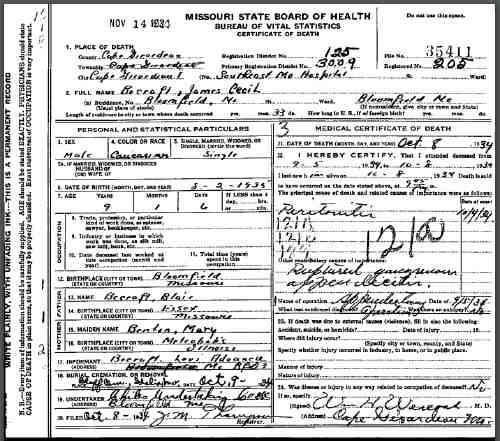 NOV 14 1934
MISSOURI STATE BOARD OF HEALTH
BUREAU OF VITAL STATISTICS
CERTIFICATE OF DEATH
Do not use this space.
1. PLACE OF DEATH
County Cape Girardeau Registration District No. 125 File No. 35411
Township Cape Girardeau Primary Registration District No. 3009 Registered No. 205
City Cape Girardeau (No. Southeast Mo Hospital
2. FULL NAME Becraft, James Cecil
(a) Residence, No. Bloomfield, Mo Bloomfield Mo
(Usual place of abode) (If nonresident, give city or town and State)
Length of residence in city or town where death occurred yrs. mos. 33 ds. How long in U. S., if of foreign birth? yrs. mos. ds.
PERSONAL AND STATISTICAL PARTICULARS
3. SEX
4. COLOR OR RACE
5. SINGLE, MARRIED, WIDOWED, OR DIVORCED (write the word)
Male Caucasian Single
5a. IF MARRIED, WIDOWED, OR DIVORCED
HUSBAND OF
(OR) WIFE OF
6. DATE OF BIRTH (MONTH, DAY, AND YEAR)
7. AGE YEARS MONTHS DAYS If LESS than 1 day, hrs. or min.
9 1 6
OCCUPATION
8. Trade, profession, or particular kind of work done, as spinner, sawyer, bookkeeper, etc.
9. Industry or business in which work was done, as silk mill, saw mill, bank, etc.
10. Date deceased last worked at this occupation (month and year)
11. Total time (years) spent in this occupation
12. BIRTHPLACE (CITY OR TOWN) Bloomfield
(STATE OR COUNTRY) Missouri
FATHER
13. NAME Becraft, Blair
14. BIRTHPLACE (CITY OR TOWN) Essex
(STATE OR COUNTRY) Missouri
MOTHER
15. MAIDEN NAME Benton, Mary
16. BIRTHPLACE (CITY OR TOWN) Metropolis
(STATE OR COUNTRY) Illinois
17. INFORMANT Becraft, Levi Advance
(ADDRESS) Mo RFD 3
18. BURIAL, CREMATION, OR REMOVAL
DATE Oct 9 - 34
19. UNDERTAKER Undertaking
(ADDRESS) Bloomfield Mo
20. FILED Oct 8 - 1934 J. M.
3
MEDICAL CERTIFICATE OF DEATH
21. DATE OF DEATH (MONTH, DAY, AND YEAR) Oct. 8 1934
22. I HEREBY CERTIFY, That I attended deceased from
to 10 - 8 1934
I last saw him alive on 10 - 8 1934 Death is said
to have occurred on the date stated above, at
The principal cause of death and related causes of importance were as follows:
Peritonitis
121B
Other contributory causes of importance:
Ruptured gangrenous
appendicitis
Name of operation Appendectomy Date of 9/5/34
What test confirmed diagnosis? Operation Was there an autopsy? No
23. If death was due to external causes (violence), fill in also the following:
Accident, suicide, or homicide? Date of injury 19
Where did injury occur?
(Specify city or town, county, and State)
Specify whether injury occurred in industry, in home, or in public place.
Manner of injury
Nature of injury
24. Was disease or injury in any way related to occupation of deceased? No
If so, specify
(Signed) Wm. H.
(Address) Cape Girardeau Mo.
WRITE PLAINLY, WITH UNFADING INK—THIS IS A PERMANENT RECORD
N. B.—Every item of information should be carefully supplied. AGE should be stated EXACTLY. PHYSICIANS should state
CAUSE OF DEATH in plain terms, so that it may be properly classified. Exact statement of OCCUPATION is very important.